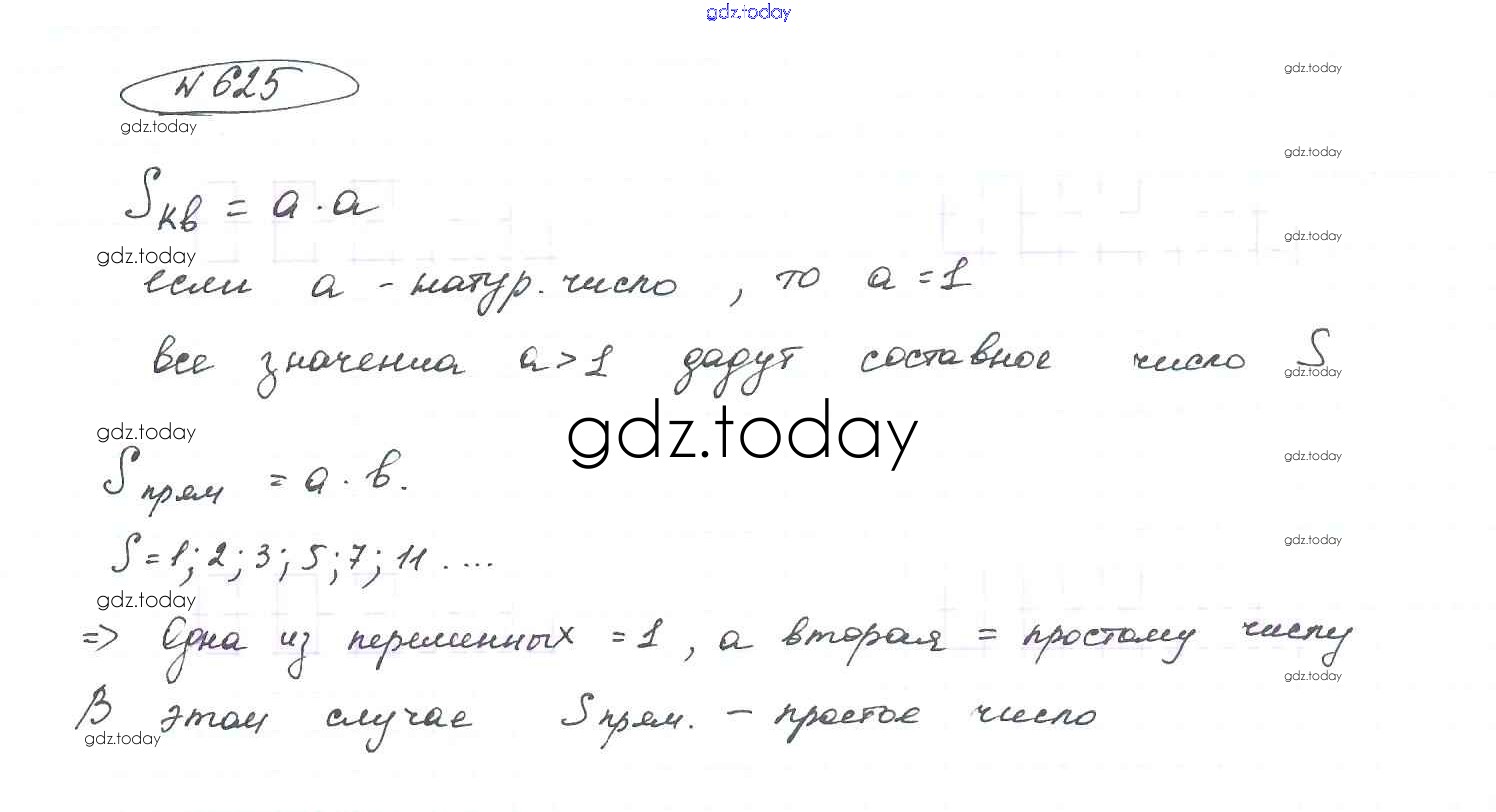 gdz.today
№ 625
gdz.today
gdz.today
gdz.today
Sкв = a · a
gdz.today
gdz.today
если a - натур. число , то a = 1
все значения a > 1 дадут составное число S
gdz.today
gdz.today
gdz.today
gdz.today
Sпрям = a · b.
S = 1; 2; 3; 5; 7; 11 ....
gdz.today
gdz.today
=> Одна из переменных = 1 , а вторая = простому числу
gdz.today
В этом случае Sпрям. – простое число
gdz.today